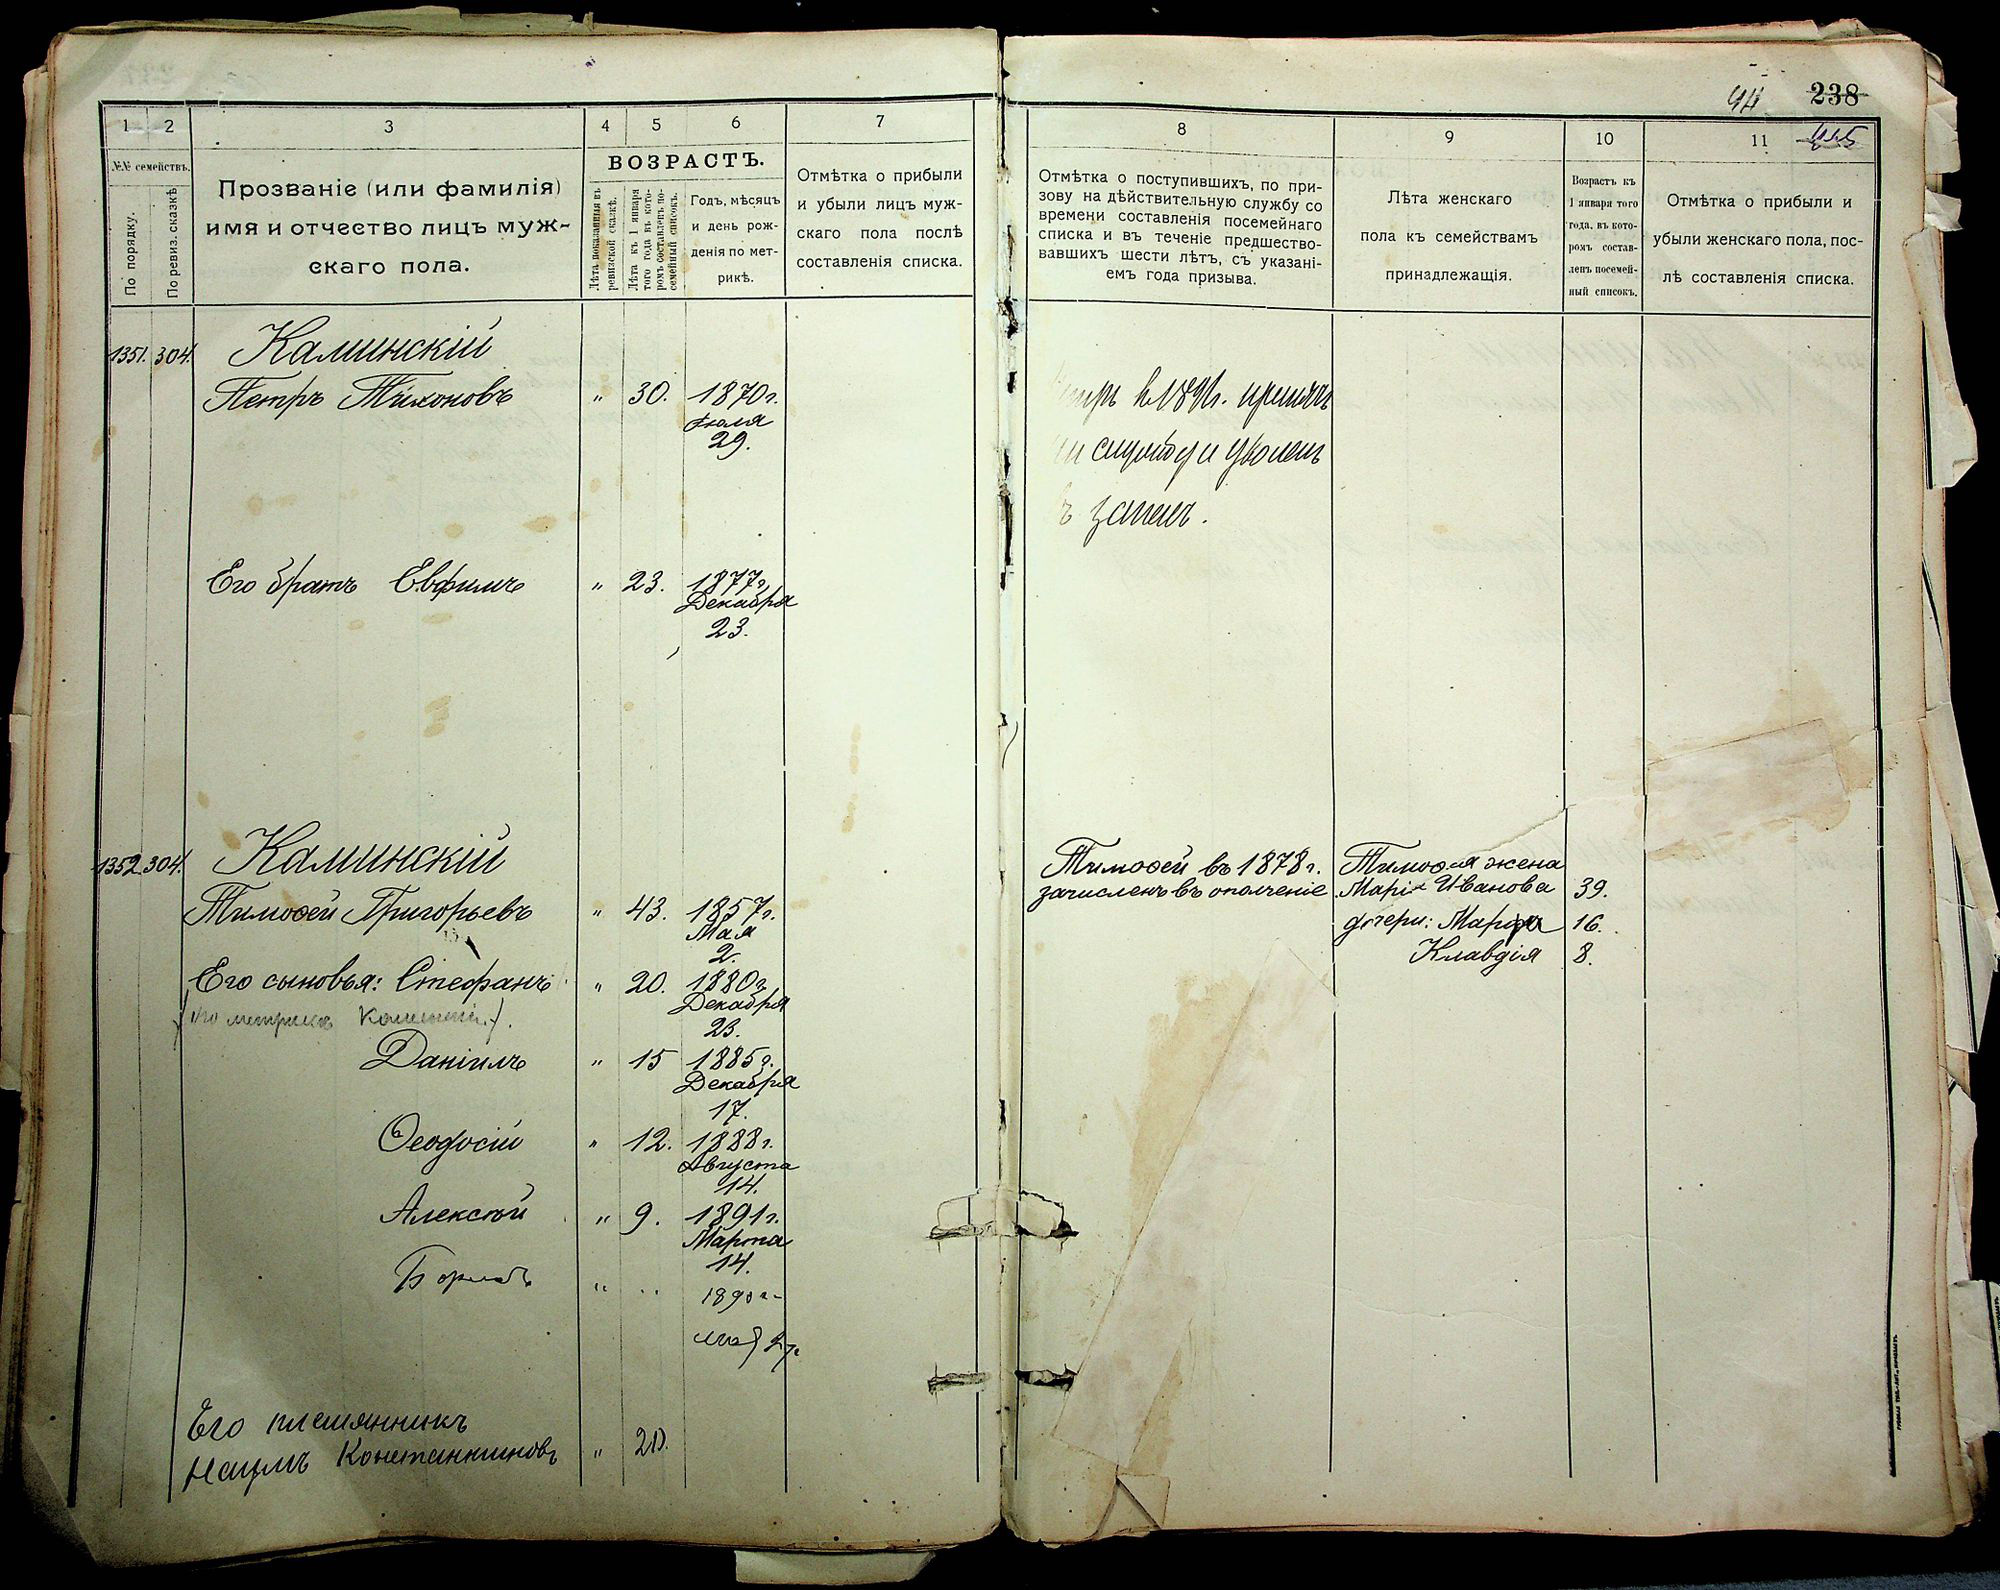 94 238
1
2
3
4
5
6
7
8
9
10
11
№№ семействъ.
По порядку.
По ревиз. сказкѣ
Прозваніе (или фамилія)
имя и отчество лицъ муж-
скаго пола.
ВОЗРАСТЪ.
Лѣта показанныя въ
ревизской сказкѣ.
Лѣта къ 1 января
того года въ кото-
ромъ составленъ по-
семейный списокъ.
Годъ, мѣсяцъ
и день рож-
денія по мет-
рикѣ.
Отмѣтка о прибыли
и убыли лицъ муж-
скаго пола послѣ
составленія списка.
Отмѣтка о поступившихъ, по при-
зову на дѣйствительную службу со
времени составленія посемейнаго
списка и въ теченіе предшество-
вавшихъ шести лѣтъ, съ указані-
емъ года призыва.
Лѣта женскаго
пола къ семействамъ
принадлежащія.
Возрастъ къ
1 января того
года, въ кото-
ромъ состав-
ленъ посемей-
ный списокъ.
Отмѣтка о прибыли и
убыли женскаго пола, пос-
лѣ составленія списка.
1351. 304. Каминскій
Петръ Тихоновъ " 30. 1870г.
Іюля
29.
въ 1891г. принятъ
службу и уволенъ
запасъ.
Его братъ Евфимъ " 23. 1877г.
Декабря
23.
1352 304. Каминскій
Тимоѳей Григорьевъ " 43. 1857г.
Мая
2.
Тимоѳей въ 1878г.
зачисленъ въ ополченіе
Тимоѳея жена
Марія Иванова 39.
дочери: Марѳа 16.
Клавдія 8.
Его сыновья: Стефанъ " 20. 1880г.
Декабря
23.
(по метрикѣ
Даніилъ " 15 1885г.
Декабря
17.
Ѳеодосій " 12. 1888г.
Августа
14.
Алексѣй " 9. 1891г.
Марта
14.
Борисъ " "
Его племянникъ
Наумъ Константиновъ " 21.